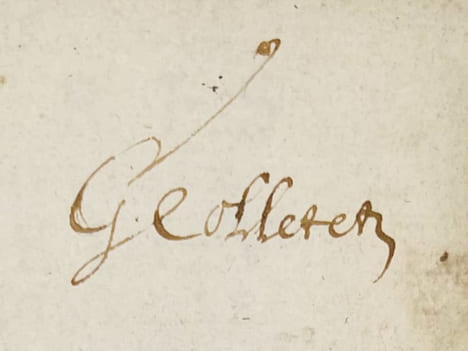 G. Colletet